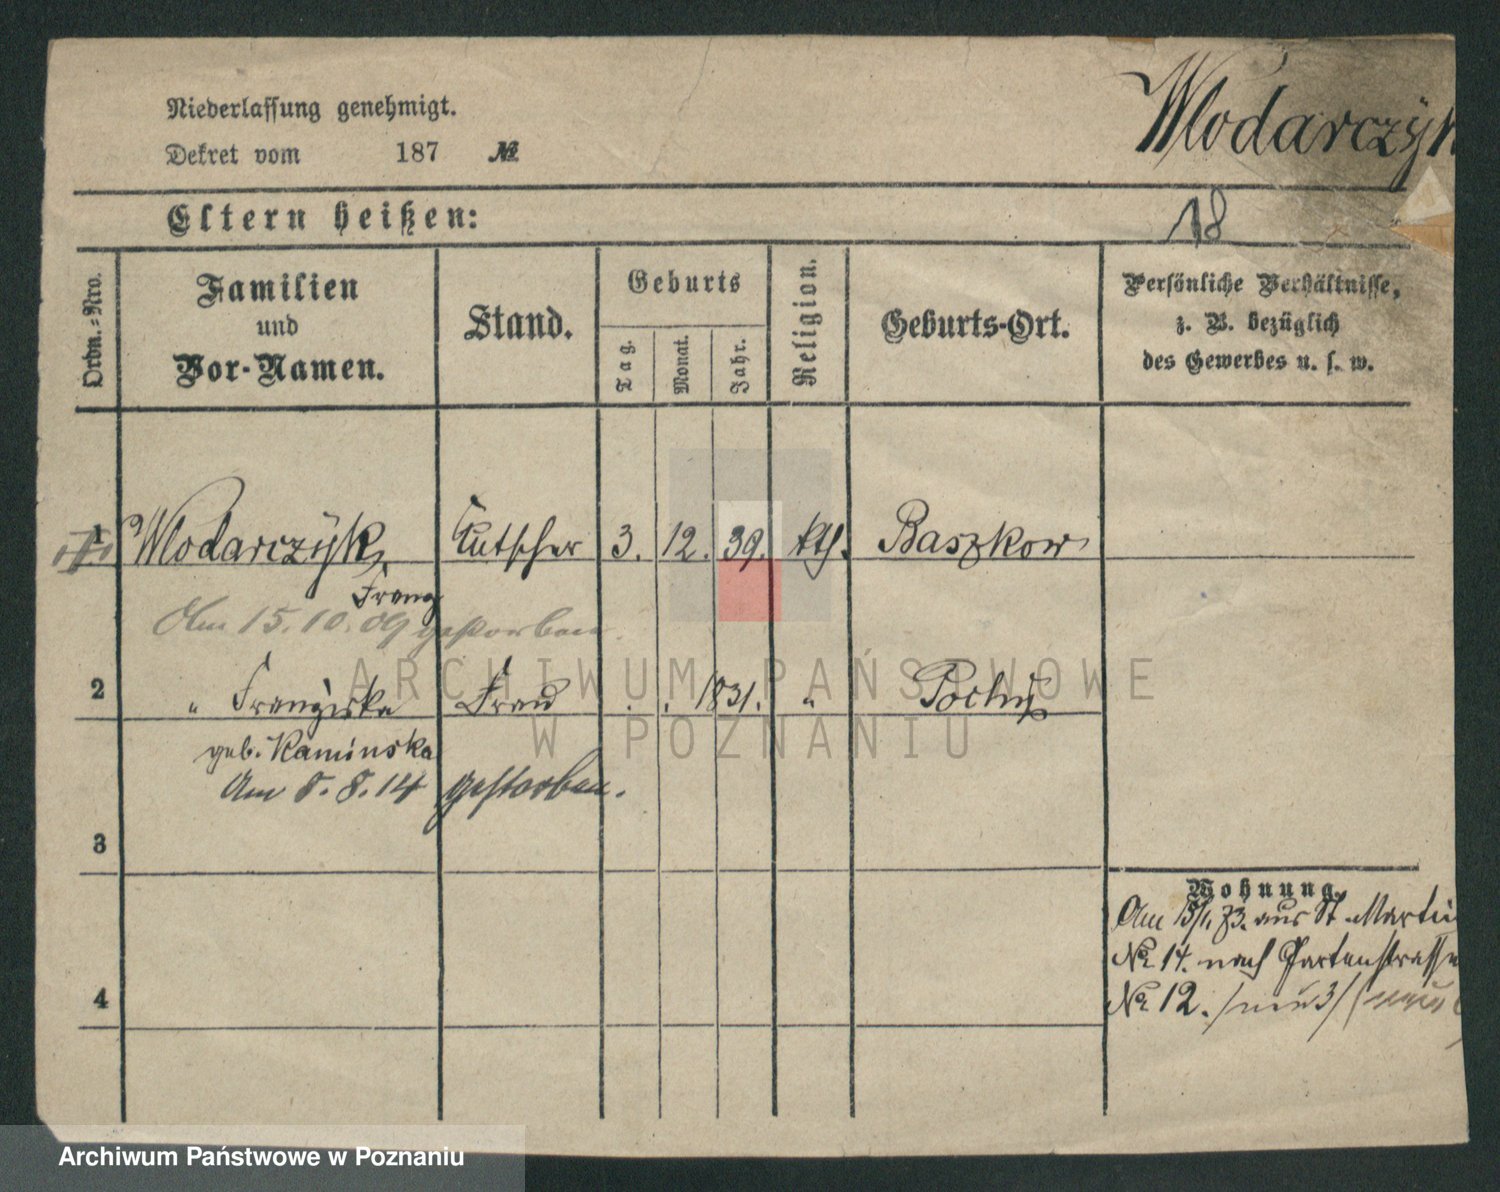 Niederlassung genehmigt.
Wlodarczÿk
Dekret vom 187 №
Eltern heißen:
18
Ordn.=Nro.
Familien
und
Vor-Namen.
Stand.
Geburts
Tag.
Monat.
Jahr.
Religion.
Geburts-Ort.
Persönliche Verhältnisse,
z. B. bezüglich
des Gewerbes u. s. w.
1 Wlodarczÿk, Kutscher 3. 12. 39. kth. Baszkow
Franz
Am 15.10.09 gestorben.
2 " Franziska Frau . . 1831. "
geb. Kaminska
Am 8.8.14 gestorben.
3
Wohnung.
Am 15/1. 73. aus St. Martin
№ 14. nach Gartenstrasse
4
№ 12. /neu 3/ (neu
ARCHIWUM PAŃSTWOWE
W POZNANIU
Archiwum Państwowe w Poznaniu